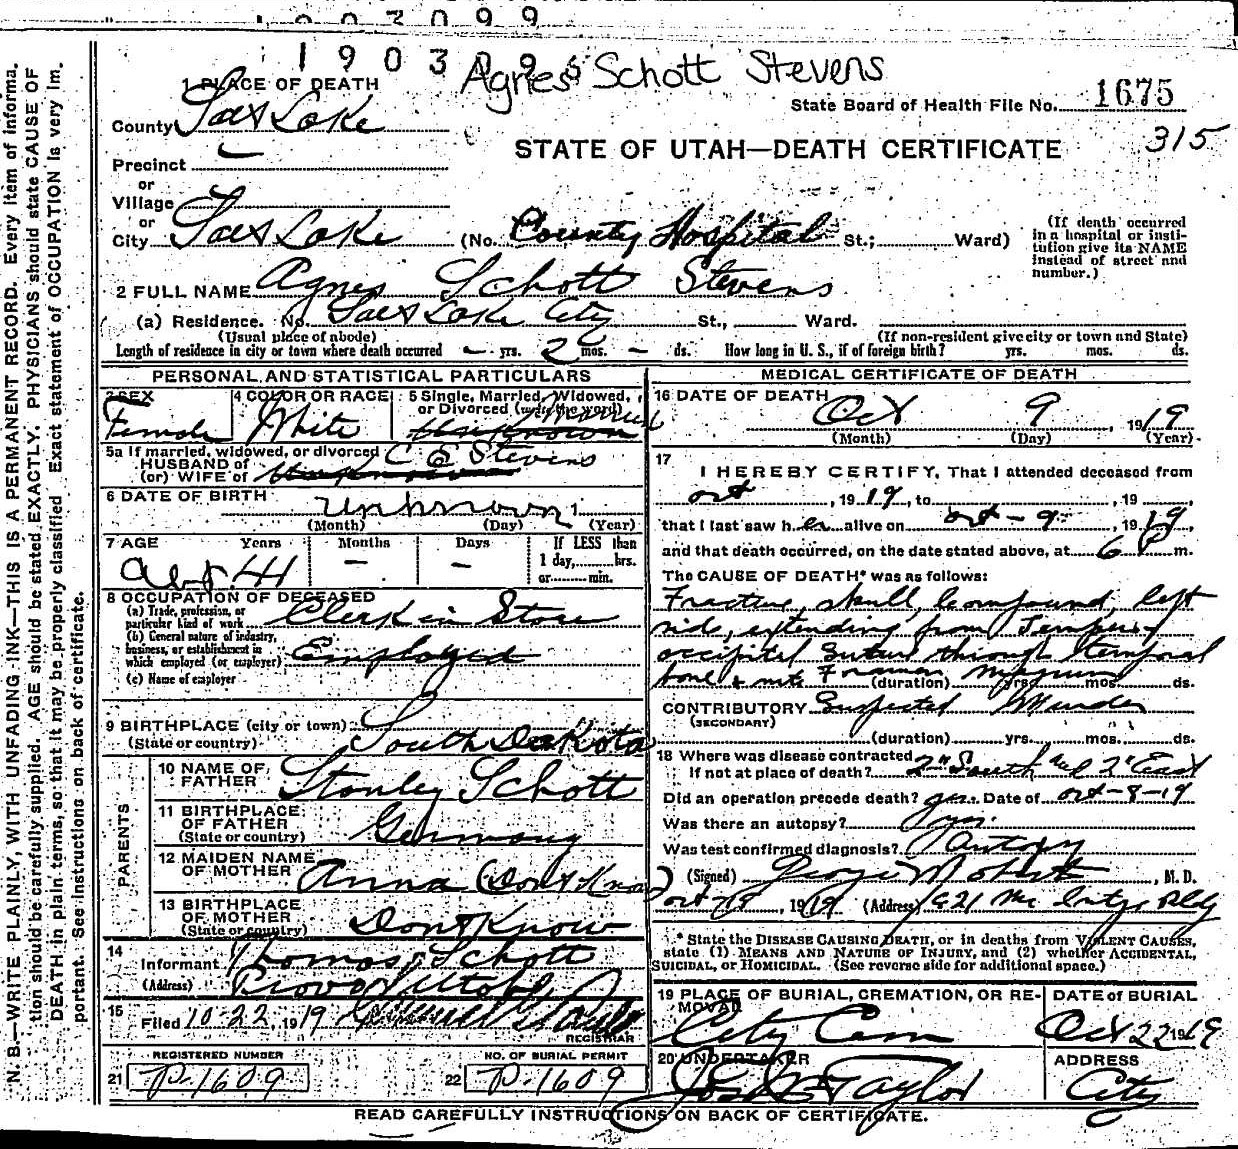 1903099
1903096
Agnes Schott Stevens
1 PLACE OF DEATH
State Board of Health File No. 1675
County Salt Lake
315
STATE OF UTAH—DEATH CERTIFICATE
Precinct
or
Village
or
City Salt Lake (No. County Hospital St.; Ward)
(If death occurred in a hospital or institution give its NAME instead of street and number.)
2 FULL NAME Agnes Schott Stevens
(a) Residence. No. Salt Lake City St., Ward.
(Usual place of abode) (If non-resident give city or town and State)
Length of residence in city or town where death occurred - yrs. 2 mos. - ds. How long in U. S., if of foreign birth? yrs. mos. ds.
PERSONAL AND STATISTICAL PARTICULARS
3 SEX Female
4 COLOR OR RACE White
5 Single, Married, Widowed, or Divorced (write the word) Married
Unknown
5a If married, widowed, or divorced
HUSBAND of
(or) WIFE of C E Stevens
Unknown
6 DATE OF BIRTH unknown
(Month) (Day) (Year)
7 AGE Years Months Days If LESS than
1 day, hrs.
or min.
Abt. 41 - -
8 OCCUPATION OF DECEASED
(a) Trade, profession, or particular kind of work Clerk in Store
(b) General nature of industry, business, or establishment in which employed (or employer) Employed
(c) Name of employer
9 BIRTHPLACE (city or town)
(State or country) South Dakota
PARENTS
10 NAME OF FATHER Stanley Schott
11 BIRTHPLACE OF FATHER
(State or country) Germany
12 MAIDEN NAME OF MOTHER Anna (Dont Know)
13 BIRTHPLACE OF MOTHER
(State or country) Dont Know
14 Informant Thomas Schott
(Address) Provo Utah
15 Filed 10-22, 1919
REGISTRAR
REGISTERED NUMBER
21 P.1609
NO. OF BURIAL PERMIT
22 P.1609
MEDICAL CERTIFICATE OF DEATH
16 DATE OF DEATH Oct 9, 1919
(Month) (Day) (Year)
17 I HEREBY CERTIFY, That I attended deceased from
Oct, 1919, to , 19 ,
that I last saw her alive on Oct-9-, 1919,
and that death occurred, on the date stated above, at 6 P m.
The CAUSE OF DEATH* was as follows:
Fracture, skull, Compound, left
side, extending from Temporo-
occipital Suture through temporal
bone & into Foramen Magnum
(duration) yrs. mos. ds.
CONTRIBUTORY Suspected Murder
(SECONDARY)
(duration) yrs. mos. ds.
18 Where was disease contracted
If not at place of death? 2nd South and 2nd East
Did an operation precede death? yes. Date of Oct-8-19
Was there an autopsy? Yes.
What test confirmed diagnosis? Autopsy
(Signed) George, M. D.
1919 (Address) 621 Bldg
* State the DISEASE CAUSING DEATH, or in deaths from VIOLENT CAUSES, state (1) MEANS AND NATURE OF INJURY, and (2) whether ACCIDENTAL, SUICIDAL, or HOMICIDAL. (See reverse side for additional space.)
19 PLACE OF BURIAL, CREMATION, OR REMOVAL City Cem
DATE of BURIAL Oct 22 1919
20 UNDERTAKER Taylor
ADDRESS City
READ CAREFULLY INSTRUCTIONS ON BACK OF CERTIFICATE.
N. B.—WRITE PLAINLY, WITH UNFADING INK—THIS IS A PERMANENT RECORD. Every item of information should be carefully supplied. AGE should be stated EXACTLY. PHYSICIANS should state CAUSE OF DEATH in plain terms, so that it may be properly classified. Exact statement of OCCUPATION is very important. See instructions on back of certificate.